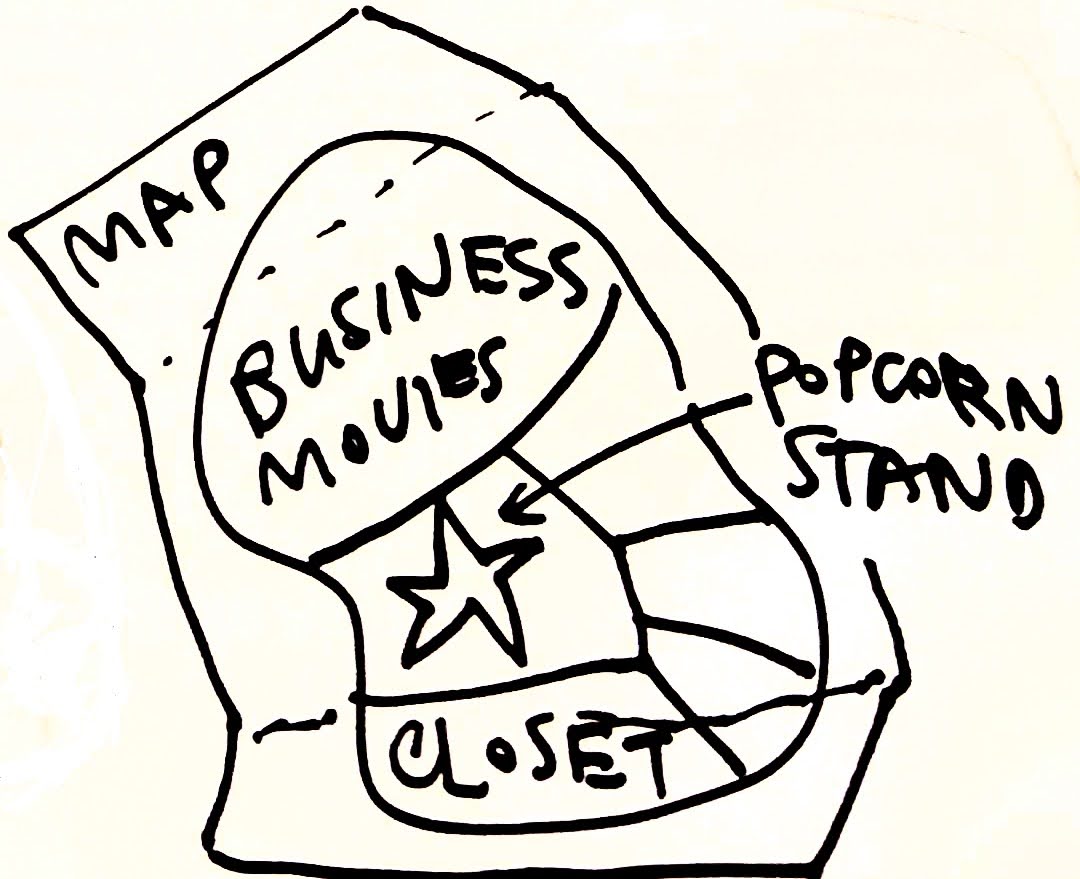 MAP
BUSINESS
MOVIES
POPCORN
STAND
CLOSET